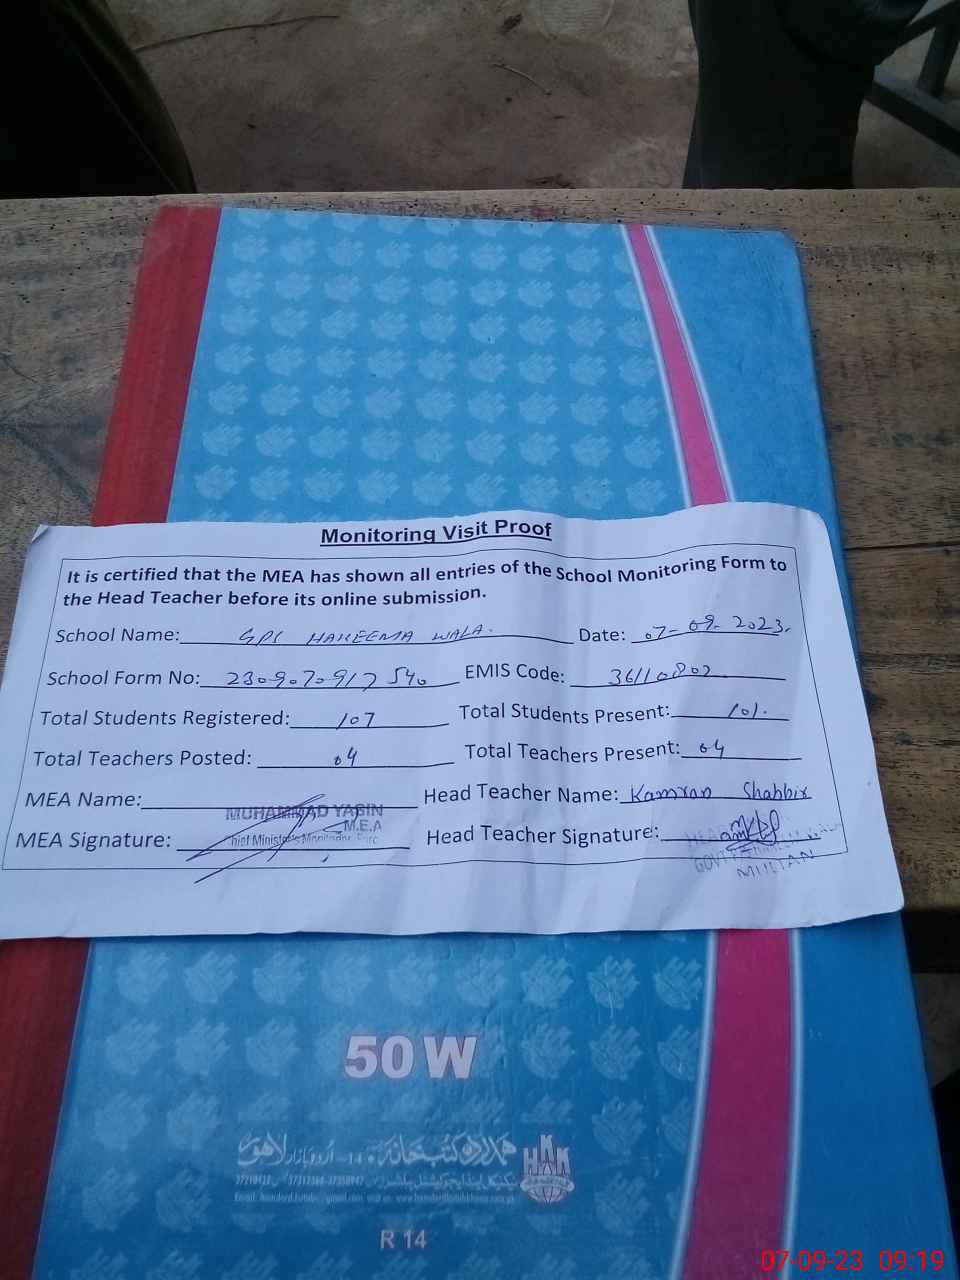 Monitoring Visit Proof
It is certified that the MEA has shown all entries of the School Monitoring Form to
the Head Teacher before its online submission.
School Name: GPS HAKEEMA WALA. Date: 07-09-2023.
School Form No: 2309070917540 EMIS Code: 36110802
Total Students Registered: 107 Total Students Present: 101.
Total Teachers Posted: 04 Total Teachers Present: 04
MEA Name: Head Teacher Name: Kamran Shabbir
MUHAMMAD YASIN
M.E.A
MEA Signature: Chief Minister's Monitoring Force Head Teacher Signature:
HEAD
GOVT
MULTAN
50 W
ہمدرد کتب خانہ 14- اردو بازار لاہور
HKK
R 14
07-09-23 09:19